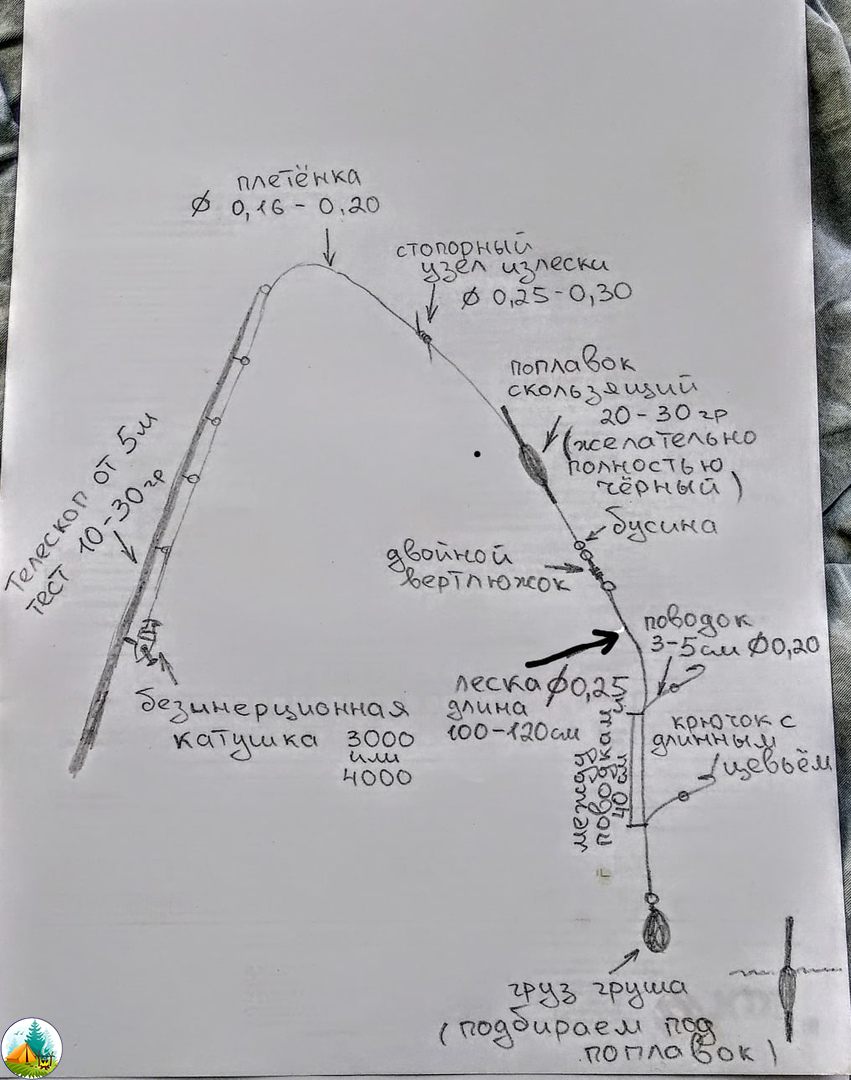 плетёнка
∅ 0,16 - 0,20
стопорный
узел излески
∅ 0,25-0,30
поплавок
скользящий
20-30 гр
(желательно
полностью
чёрный)
Телескоп от 5м
тест 10-30 гр
бусина
двойной
вертлюжок
поводок
3-5см ∅0,20
леска ∅0,25
длина
100-120см
безинерционная
катушка 3000
или
4000
между
поводками
40 см
крючок с
длинным
цевьём
груз груша
(подбираем под
поплавок)